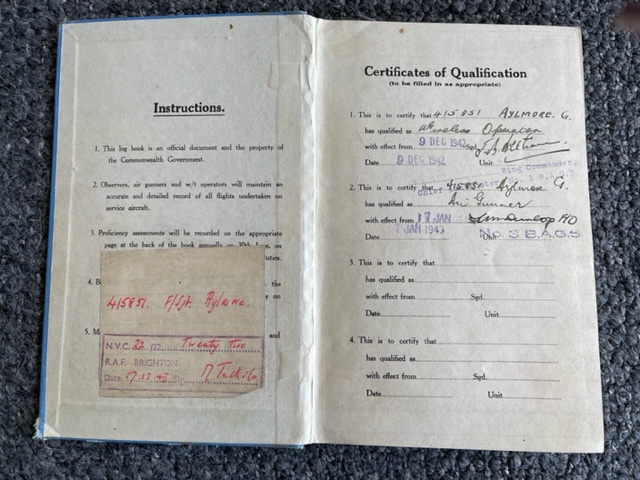 Instructions.
1. This log book is an official document and the property
of the Commonwealth Government.
2. Observers, air gunners and w/t operators will maintain an
accurate and detailed record of all flights undertaken on
service aircraft.
3. Proficiency assessments will be recorded on the appropriate
page at the back of the book annually on 30th June, on
the
on
and
415851. F/Sgt. Aylmore.
N.V.C. 22 /22 Twenty Two
R.A.F. BRIGHTON
Date 17.12.43
Certificates of Qualification
(to be filled in as appropriate)
1. This is to certify that 415851 AYLMORE. G.
has qualified as Wireless Operator
with effect from 9 DEC 1942 Sgd.
Date 9 DEC 1942 Unit
Wing Commander,
2. This is to certify that 415851 Aylmore G.
has qualified as Air Gunner
with effect from 17 JAN
Date JAN 1943 Unit No. 3 B.A.G.S
3. This is to certify that
has qualified as
with effect from Sgd.
Date Unit
4. This is to certify that
has qualified as
with effect from Sgd.
Date Unit